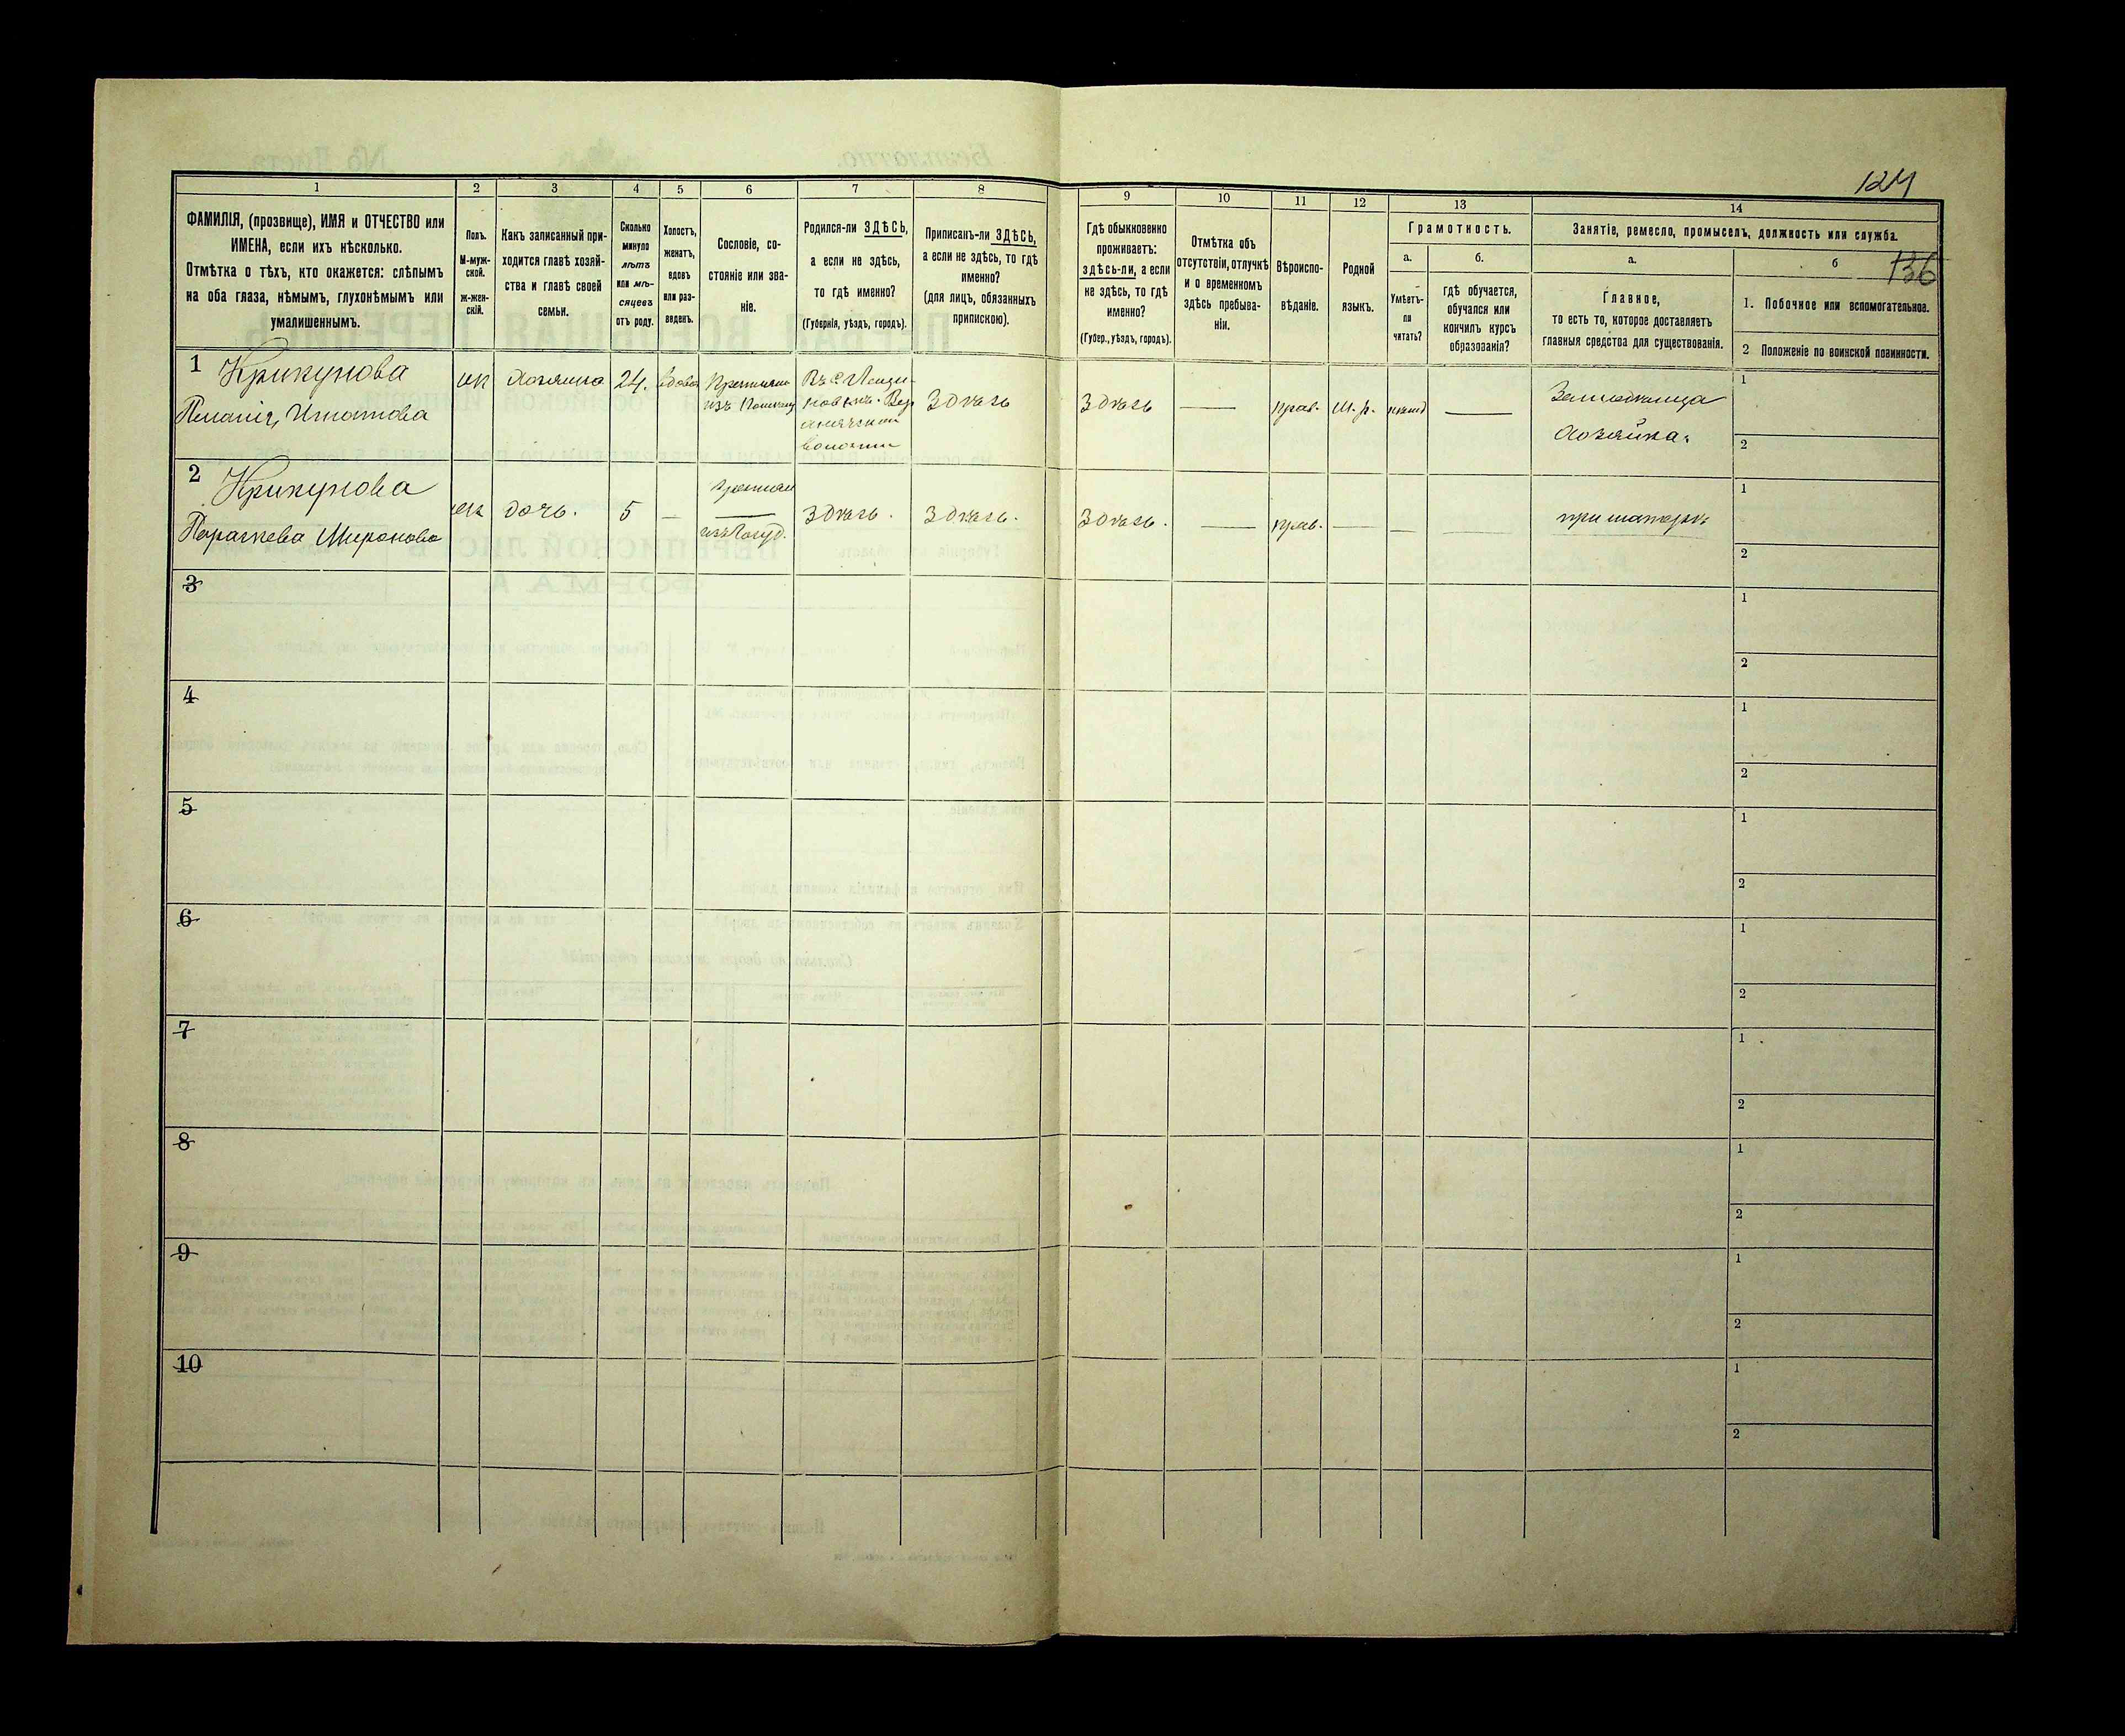 124
136
1
2
3
4
5
6
7
8
9
10
11
12
13
14
ФАМИЛІЯ, (прозвище), ИМЯ и ОТЧЕСТВО или
ИМЕНА, если ихъ нѣсколько.
Отмѣтка о тѣхъ, кто окажется: слѣпымъ
на оба глаза, нѣмымъ, глухонѣмымъ или
умалишеннымъ.
Полъ.
М-муж-
ской.
ж-жен-
скій.
Какъ записанный при-
ходится главѣ хозяй-
ства и главѣ своей
семьи.
Сколько
минуло
лѣтъ
или мѣ-
сяцевъ
отъ роду.
Холостъ,
женатъ,
вдовъ
или раз-
веденъ.
Сословіе, со-
стояніе или зва-
ніе.
Родился-ли ЗДѢСЬ,
а если не здѣсь,
то гдѣ именно?
(Губернія, уѣздъ, городъ).
Приписанъ-ли ЗДѢСЬ,
а если не здѣсь, то гдѣ
именно?
(для лицъ, обязанныхъ
припискою).
Гдѣ обыкновенно
проживаетъ:
здѣсь-ли, а если
не здѣсь, то гдѣ
именно?
(Губер., уѣздъ, городъ).
Отмѣтка объ
отсутствіи, отлучкѣ
и о временномъ
здѣсь пребыва-
ніи.
Вѣроиспо-
вѣданіе.
Родной
языкъ.
Грамотность.
а.
Умѣетъ-
ли
читать?
б.
гдѣ обучается,
обучался или
кончилъ курсъ
образованія?
Занятіе, ремесло, промыселъ, должность или служба.
а.
Главное,
то есть то, которое доставляетъ
главныя средства для существованія.
б
1. Побочное или вспомогательное.
2 Положеніе по воинской повинности.
1 Крикунова
Пелагія Игнатова
ж
хозяйка
24.
вдова
Крестьян
изъ
волости
здѣсь
здѣсь
прав.
м. р.
хозяйка.
1
2
2 Крикунова
Параскева Миронова
ж
дочь.
5
здѣсь.
здѣсь.
здѣсь.
прав.
при матери
1
2
3
1
2
4
1
2
5
1
2
6
1
2
7
1
2
8
1
2
9
1
2
10
1
2